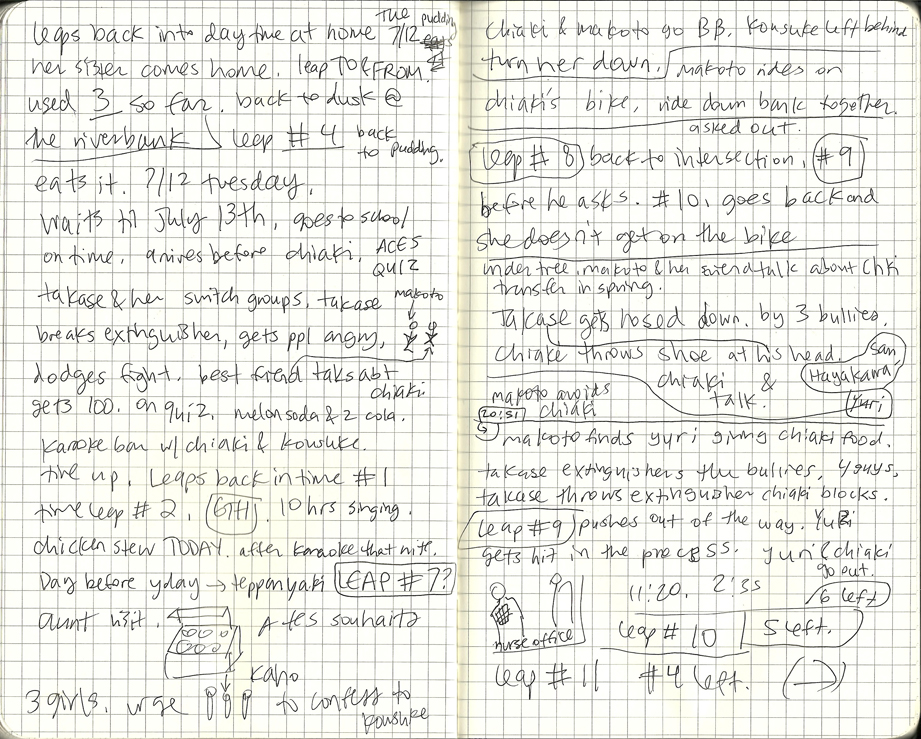 The pudding
leaps back into daytime at home 7/12
her sister comes home. leap TO & FROM.
used 3 so far. back to dusk @
the riverbank leap # 4 back to pudding.
eats it. 7/12 tuesday.
waits til July 13th, goes to school
on time, arrives before chiaki. ACES QUIZ
takase & her switch groups, takase makoto
breaks extinguisher, gets ppl angry,
dodges fight. best friend talks abt chiaki.
gets 100. on quiz. melon soda & 2 cola.
karaoke bar w/ chiaki & kousuke.
time up. Leaps back in time #1
time leap # 2. 6TH 10 hrs singing.
chicken stew TODAY. after karaoke that nite.
Day before yday → teppanyaki LEAP # 7?
aunt visit. A tes souhaits
kaho
3 girls. urge to confess to kousuke
Chiaki & makoto go BB. kousuke left behind
turn her down. makoto rides on
chiaki's bike, ride down bank together.
asked out.
leap # 8 back to intersection, #9
before he asks. #10, goes back and
she doesn't get on the bike
under tree, makoto & her friend talk about Chki
transfer in spring.
Takase gets hosed down. by 3 bullies.
chiake throws shoe at his head. San
Hayakawa
chiaki & talk. Yuri
makoto avoids chiaki
20:51
makoto finds yuri giving chiaki food.
takase extinguishers the bullies, 4 guys,
takase throws extinguisher chiaki blocks.
leap #9 pushes out of the way. Yuri
gets hit in the process. yuri & chiaki go out.
11:20. 2:35 6 left
nurse office
leap # 10 5 left.
leap # 11 #4 left. (→)